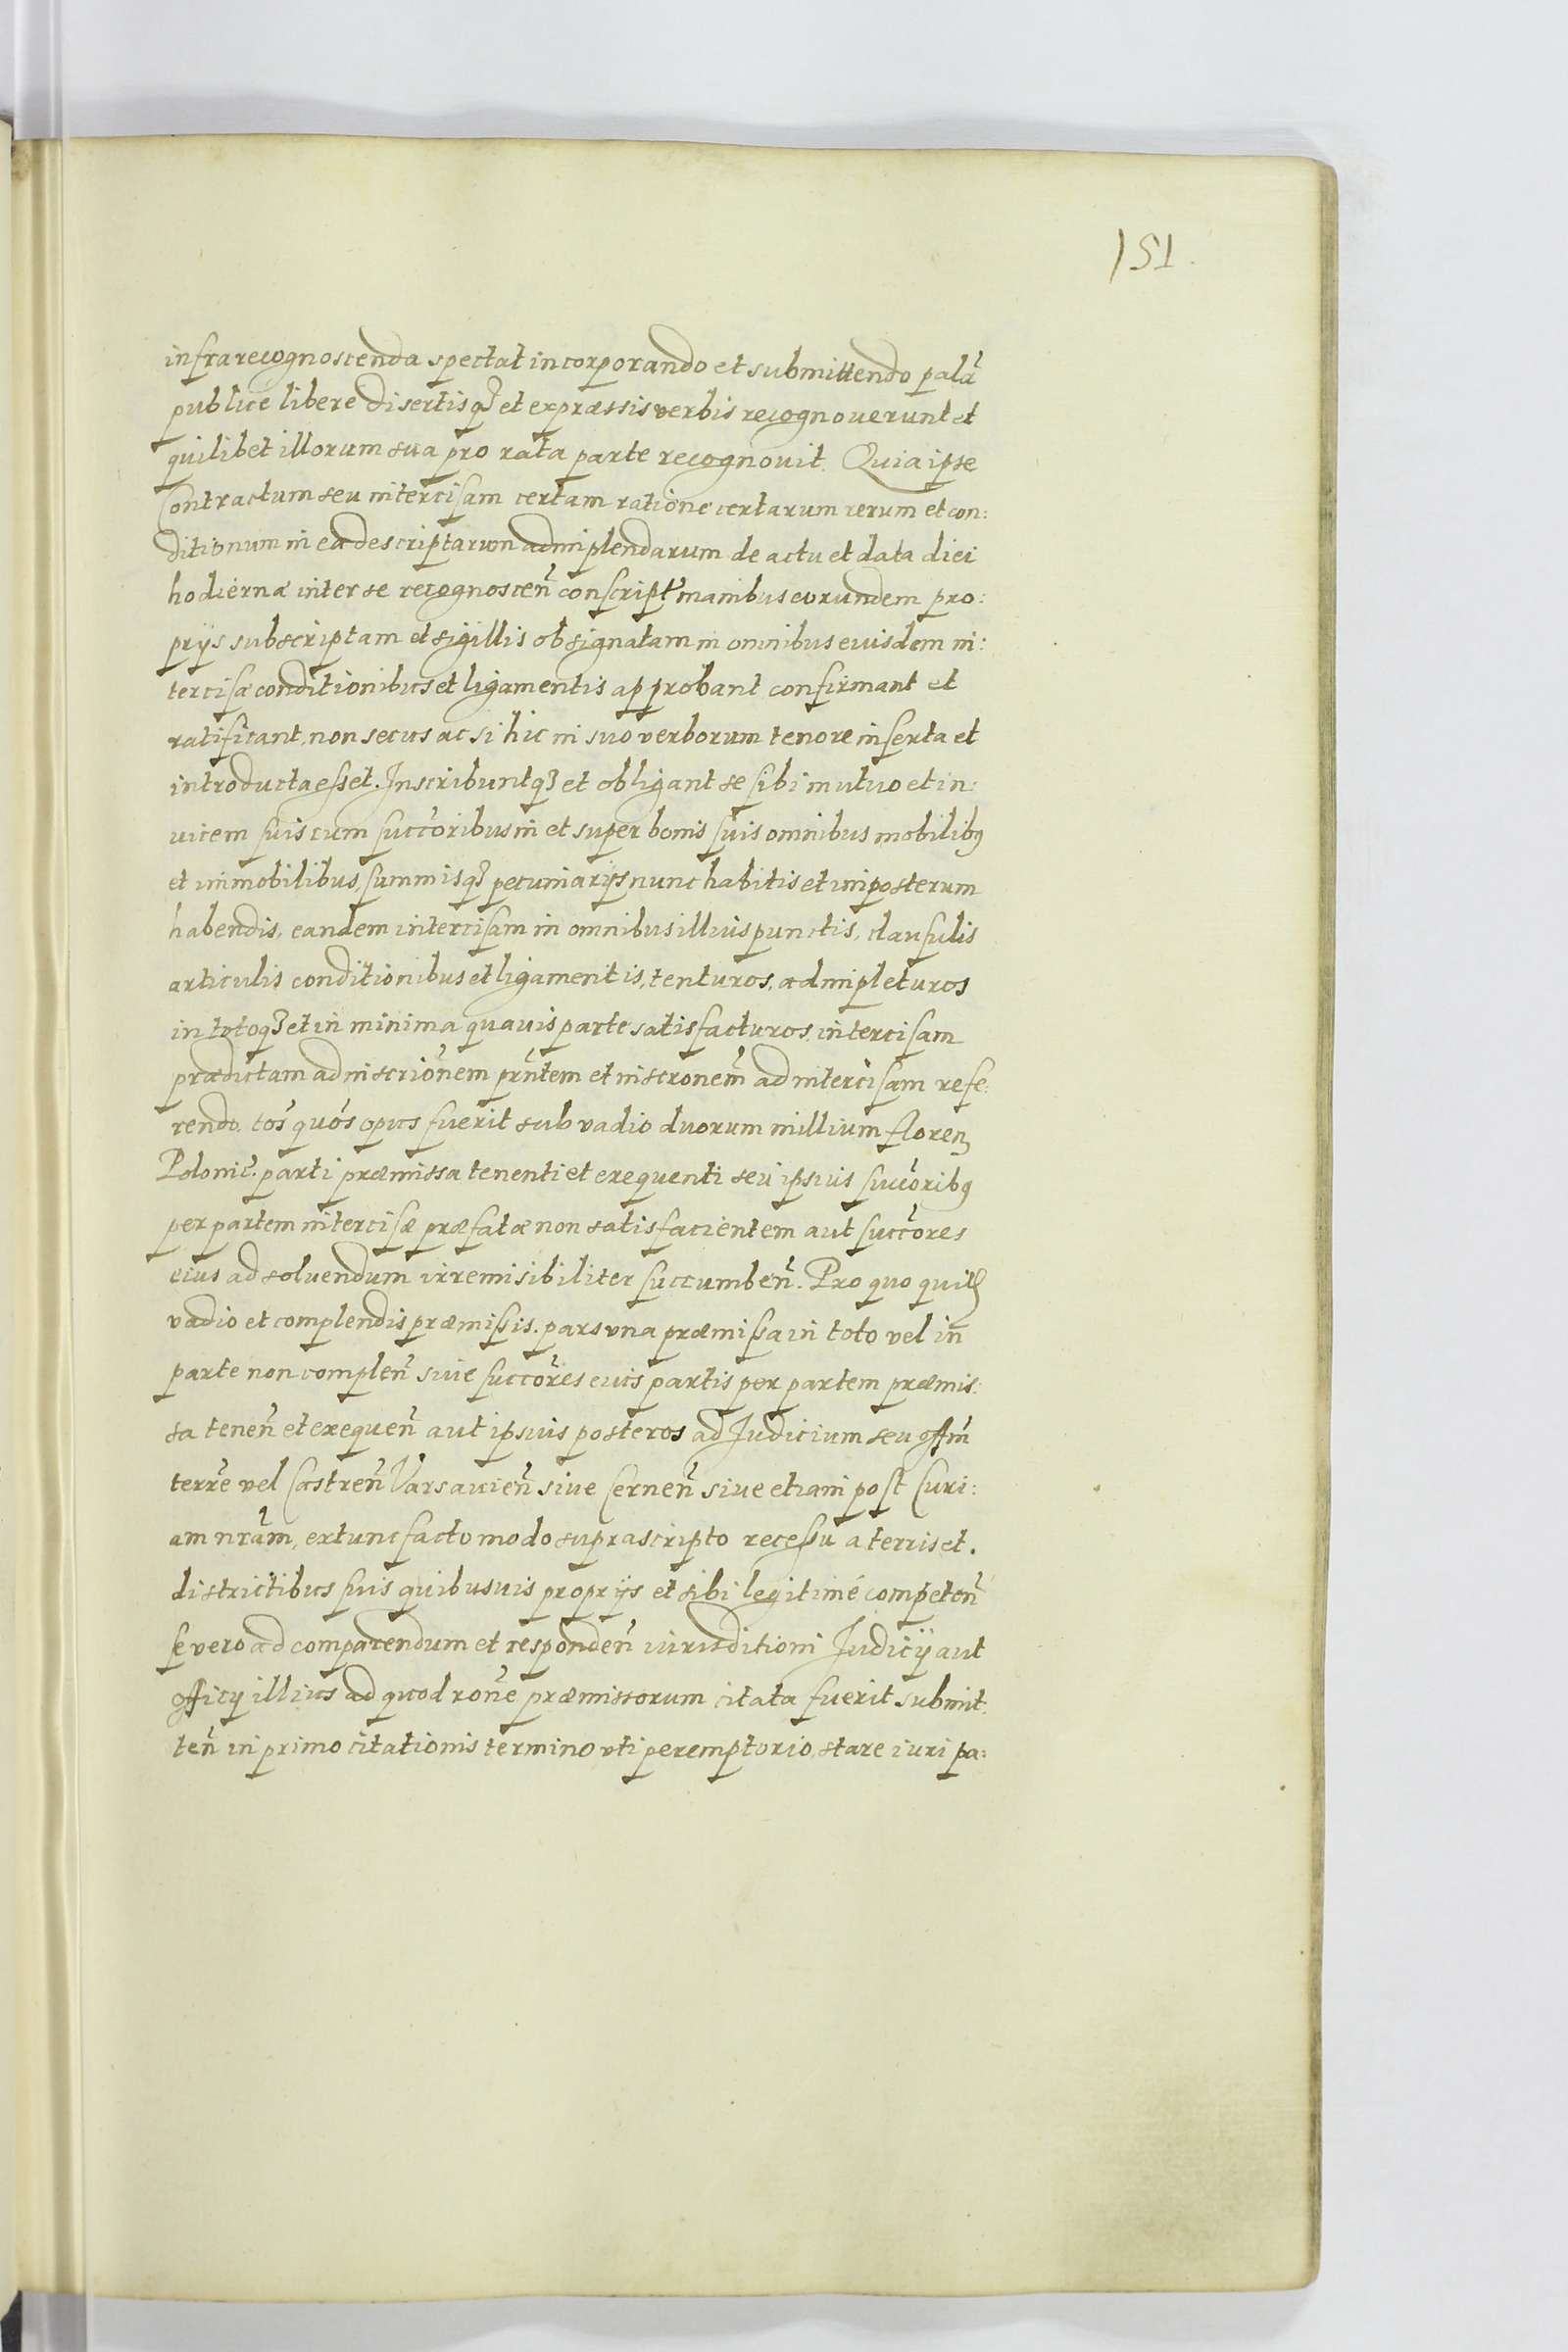 151.
infrarecognoscenda spectat incorporando et submittendo palā
publice libere disertisq3 et expraessis verbis recognouerunt et
quilibet illorum sua pro rata parte recognovit. Quia ipse
Contractum seu intercisam certam ratione certarum rerum et con:
ditionum in ea descriptarum adimplendarum de actu et data diei
hodiernæ inter se recognoscen̄ conscript̄ manibus eorundem pro:
prijs subscriptam et sigillis obsignatam in omnibus eiusdem in:
tercisæ conditionibus et ligamentis approbant confirmant et
ratificant, non secus ac si hic in suo verborum tenore inserta et
introducta esset. Inscribuntq3 et obligant se sibi mutuo et in:
uicem suis cum succ̄oribus in et super bonis suis omnibus mobilib9
et immobilibus, summisq3 pecuniarijs nunc habitis et inposterum
habendis, eandem intercisam in omnibus illius punctis, clausulis
articulis conditionibus et ligamentis, tenturos, adimpleturos
in totoq3 et in minima quauis parte satisfacturos, intercisam
prædictam ad inscriōnem prn̄tem et inscronem̄ ad intercisam refe:
rendo. tōs quōs opus fuerit sub vadio duorum millium floren3
Polonic̄. parti præmissa tenenti et exequenti seu ipsius succ̄orib9
per partem intercisæ præfatæ non satisfacientem aut succ̄ores
eius ad soluendum irremisibiliter succumben̄. Pro quo quid͠
vadio et complendis præmissis. pars vna præmissa in toto vel in
parte non complen̄ siue succ̄ores eius partis per partem præmis:
sa tenen̄ et exequen̄ aut ipsius posteros ad Judicium seu offm̄
terrē vel Castren̄ Varsauien̄ siue Cernen̄ siue etiam post Curi:
am nrām, extunc facto modo suprascripto recessu a terris et.
districtibus suis quibusuis proprijs et sibi legitimé competen̄
se vero ad comparendum et responden̄ iurisditioni Judicij aut
officij illius ad quod ron̄e præmissorum citata fuerit submit:
ten̄ in primo citationis termino vti peremptorio, stare iuri pa: